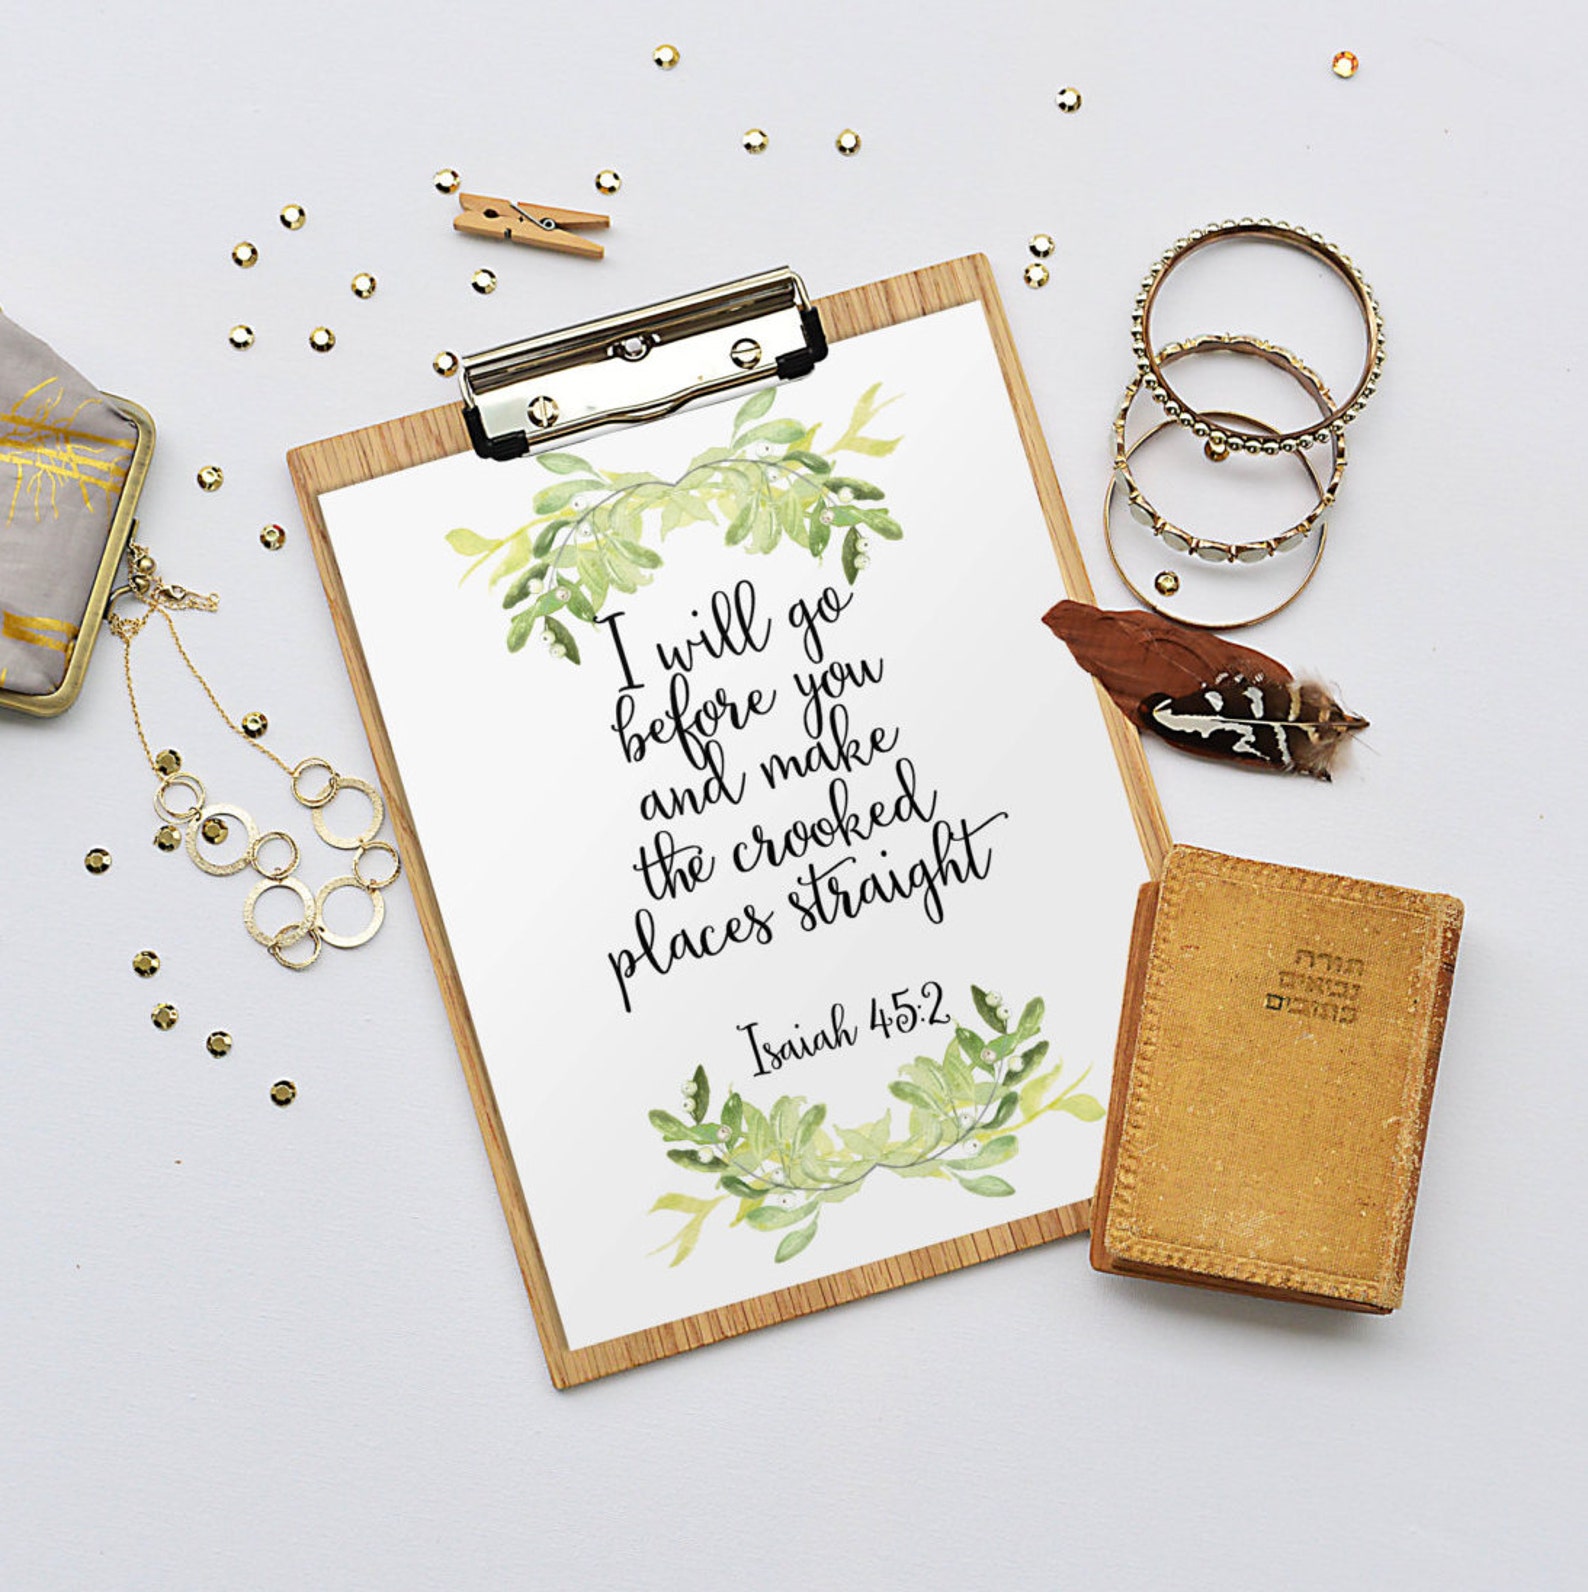 I will go
before you
and make
the crooked
places straight
Isaiah 45:2
תורה
נביאים
כתובים